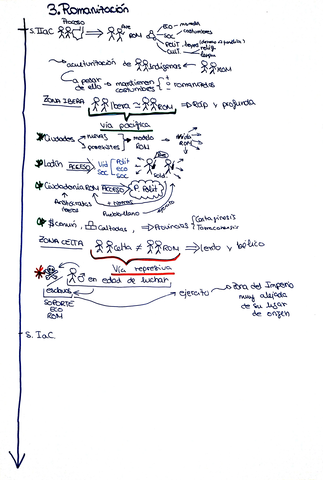 3. Romanización
S. II a.C. Proceso
ROM
ECO → moneda
SOC costumbres
POLIT
CULT
aculturación de indígenas ← ROM
a pesar de ello → mantienen costumbres + romanizadas
ZONA ÍBERA Íbera ≃ ROM ⇒ Ráp y profunda
Vía pacífica
Ciudades nuevas modelo ROM
Latín ACCESO Vid Polit
SOC eco
soc
Ciudadanía ROM ACCESO P. Polit
Aristócratas
Calzadas, ⇒ Provincias
ZONA CELTA Celta ≠ ROM ⇒ lento y bélico
Vía represiva
en edad de luchar
esclavos
SOPORTE
ECO
ROM
ejército
Zona del Imperio
muy alejada
de su lugar
de origen
S. I a.C.